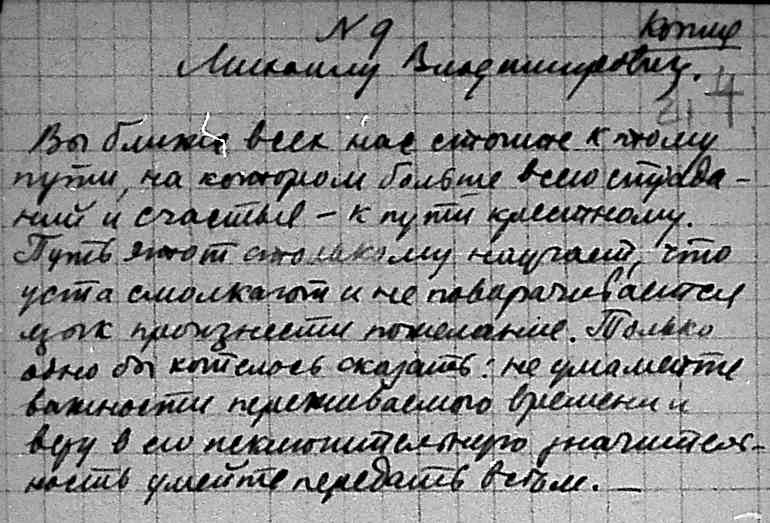 N 9 Копия
Михаилу Владимировичу.
4
Вы ближе всех нас стоите к тому
пути, на котором больше всего страда-
ний и счастья – к пути крестному.
Путь этот столькому научает, что
уста смолкают и не поварачивается
язык произнести пожелание. Только
одно бы хотелось сказать: не умаляйте
важности переживаемого времени и
веру в его исключительную значитель-
ность умейте передать всем. —